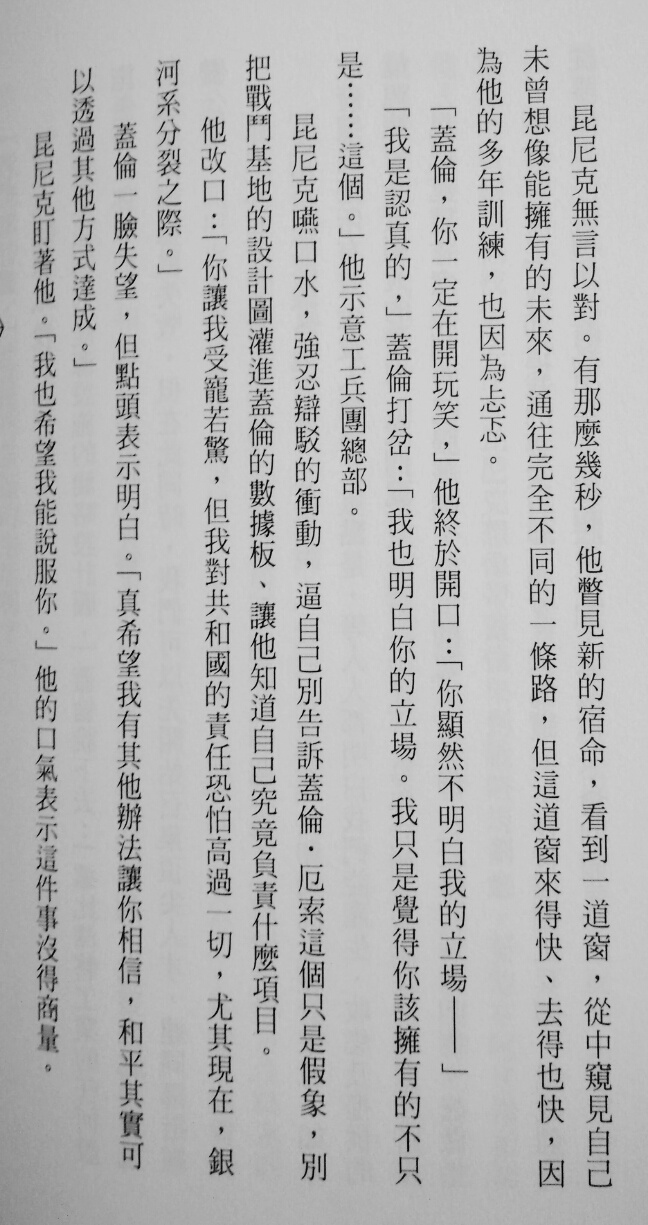 昆尼克無言以對。有那麼幾秒，他瞥見新的宿命，看到一道窗，從中窺見自己
未曾想像能擁有的未來，通往完全不同的一條路，但這道窗來得快、去得也快，因
為他的多年訓練，也因為忐忑。
「蓋倫，你一定在開玩笑，」他終於開口：「你顯然不明白我的立場——」
「我是認真的，」蓋倫打岔：「我也明白你的立場。我只是覺得你該擁有的不只
是……這個。」他示意工兵團總部。
昆尼克嚥口水，強忍辯駁的衝動，逼自己別告訴蓋倫．厄索這個只是假象，別
把戰鬥基地的設計圖灌進蓋倫的數據板、讓他知道自己究竟負責什麼項目。
他改口：「你讓我受寵若驚，但我對共和國的責任恐怕高過一切，尤其現在，銀
河系分裂之際。」
蓋倫一臉失望，但點頭表示明白。「真希望我有其他辦法讓你相信，和平其實可
以透過其他方式達成。」
昆尼克盯著他。「我也希望我能說服你。」他的口氣表示這件事沒得商量。